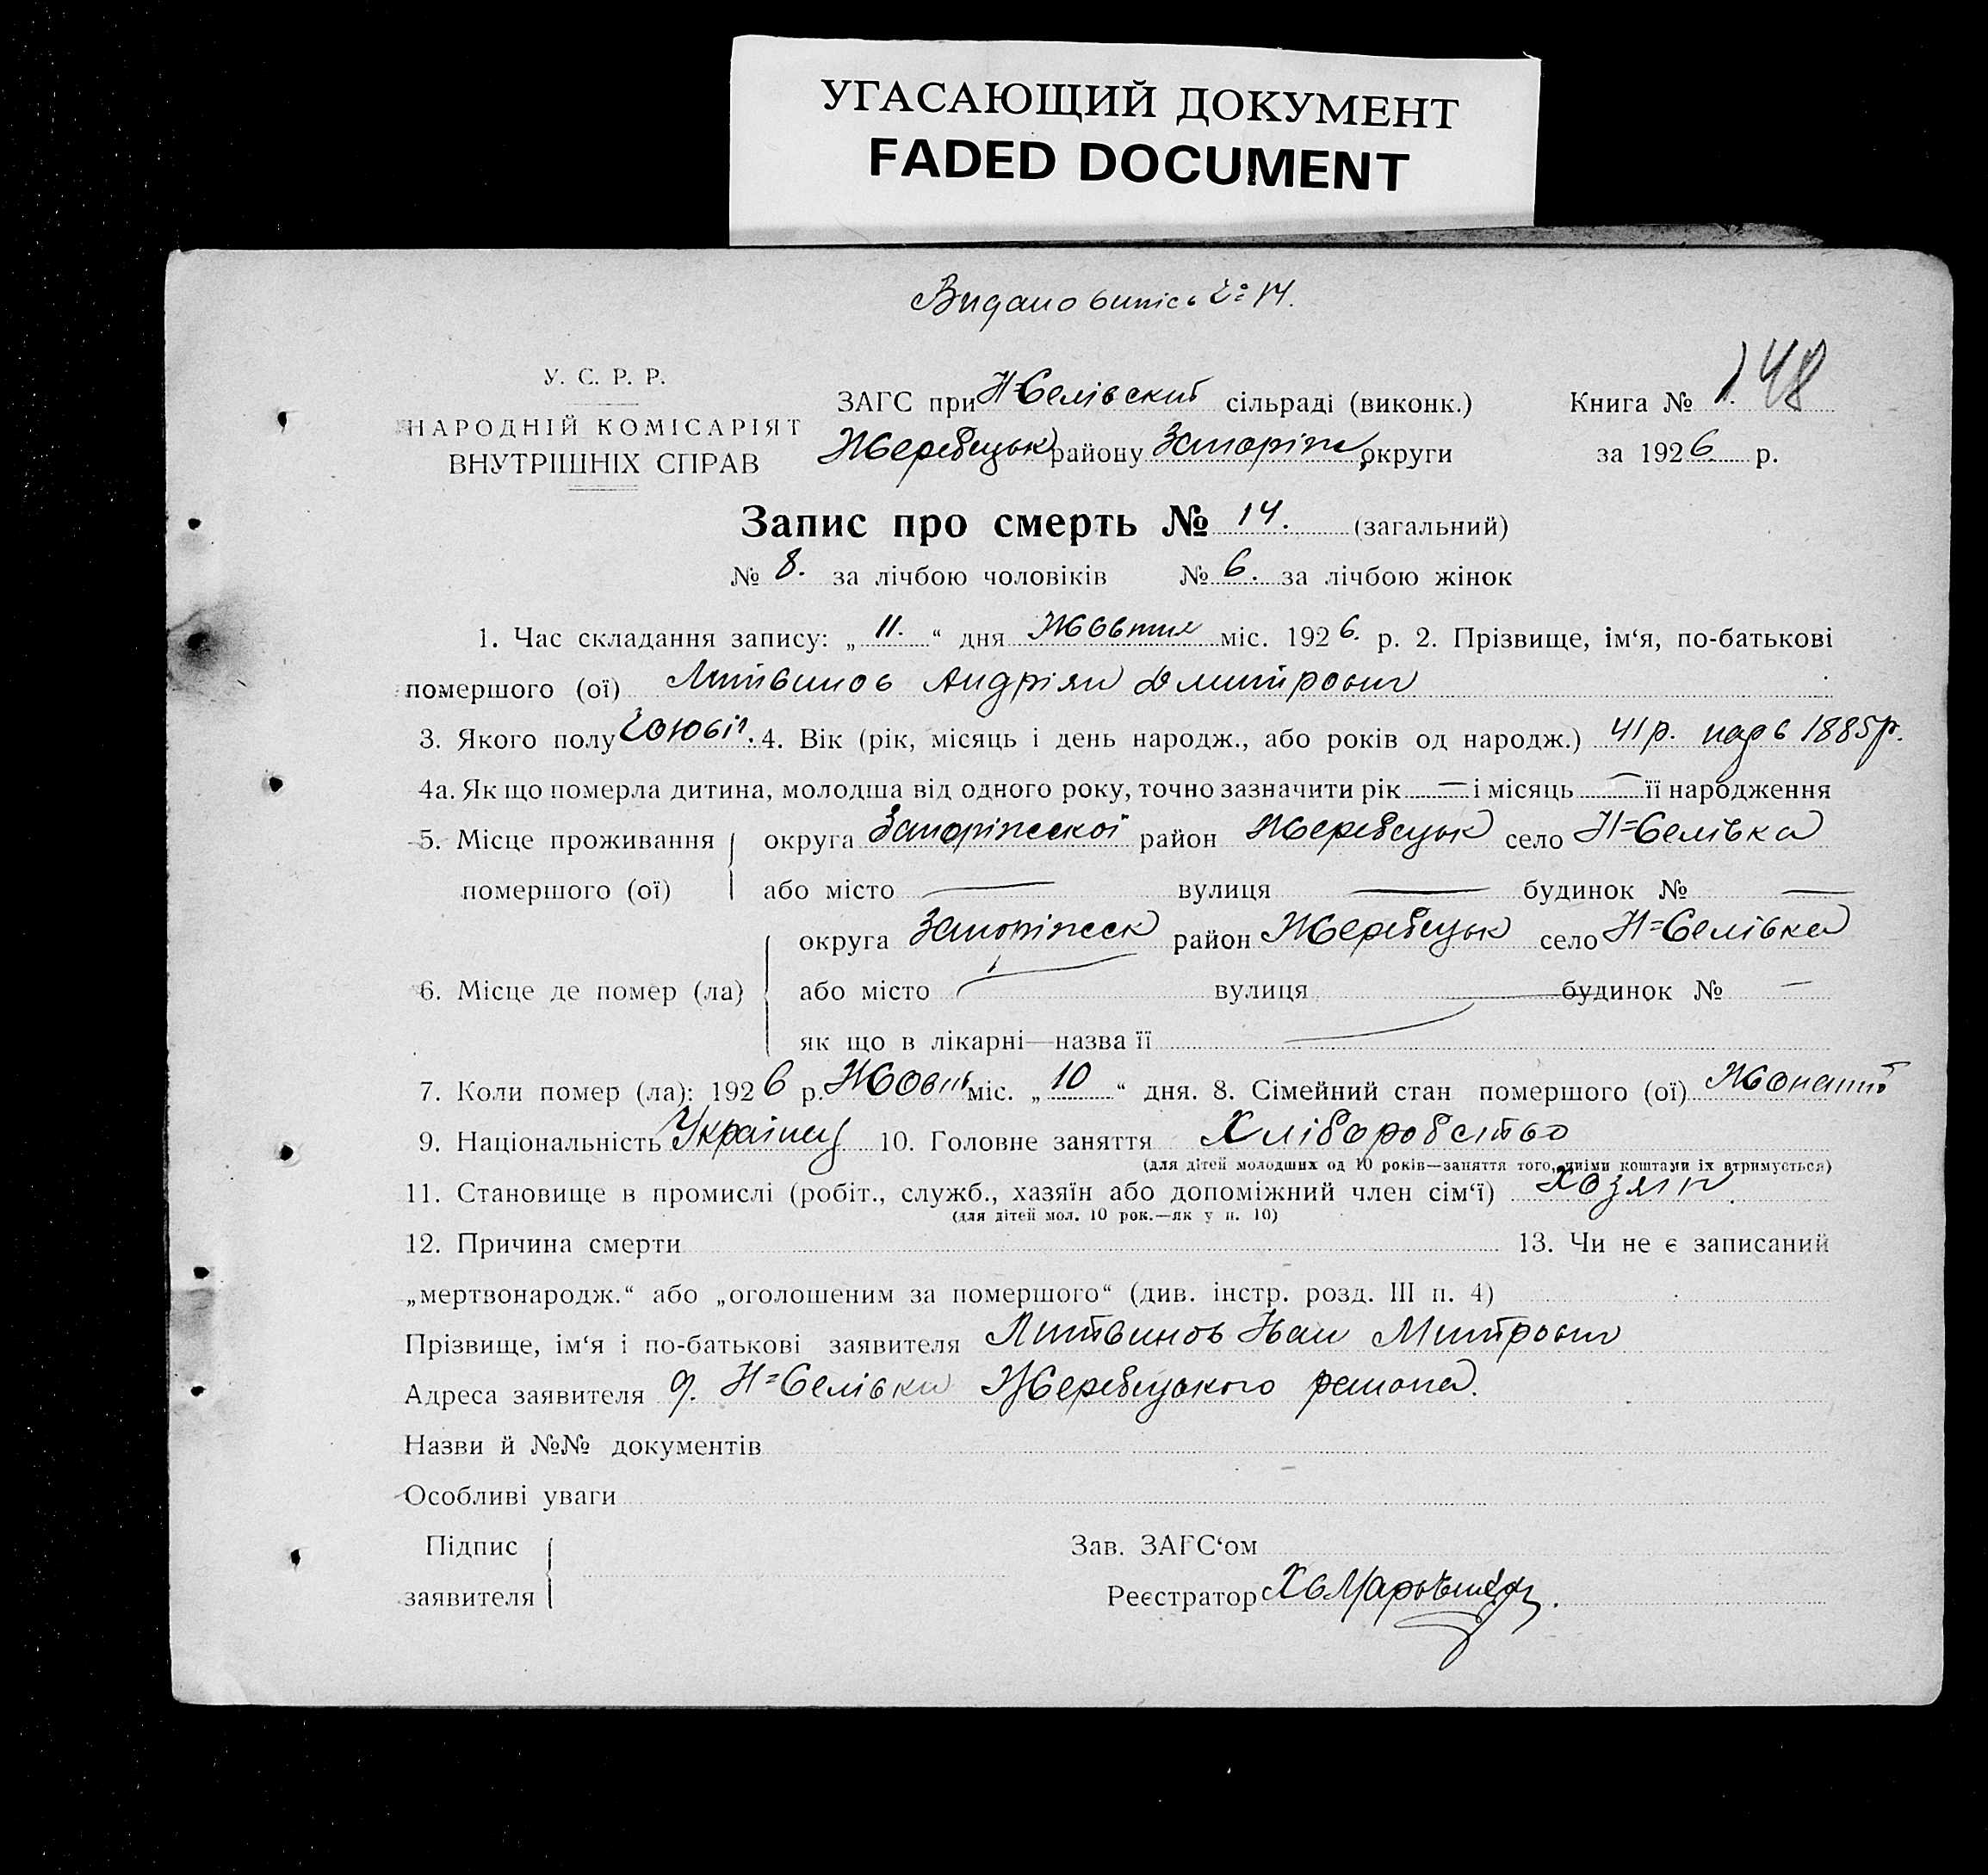 УГАСАЮЩИЙ ДОКУМЕНТ
FADED DOCUMENT
Видано випісь № 14.
148
У. С. Р. Р.
НАРОДНІЙ КОМІСАРІЯТ
ВНУТРІШНІХ СПРАВ
ЗАГС при Н=Селівскій сільраді (виконк.)
Жеребецьк району Запоріж округи
Книга № 1.
за 1926 р.
Запис про смерть № 14. (загальний)
№ 8. за лічбою чоловіків № 6. за лічбою жінок
1. Час складання запису: „11.“ дня Жовтня міс. 1926. р. 2. Прізвище, ім‘я, по-батькові
помершого (ої) Литвинов Андріян Дмитрович
3. Якого полу чоловіч. 4. Вік (рік, місяць і день народж., або років од народж.) 41 р. нар в 1885 р.
4а. Як що померла дитина, молодша від одного року, точно зазначити рік — і місяць — її народження
5. Місце проживання округа Запоріжської район Жеребецьк село Н=Селівка
помершого (ої) або місто — вулиця — будинок № —
округа Запоріжськ район Жеребецьк село Н=Селівка
6. Місце де помер (ла) або місто — вулиця — будинок № —
як що в лікарні—назва її —
7. Коли помер (ла): 1926 р. Жовт міс. „10“ дня. 8. Сімейний стан помершого (ої) Жонатий
9. Національність Українец 10. Головне заняття Хліборобство
(для дітей молодших од 10 років—заняття того, чиїми коштами їх втримується)
11. Становище в промислі (робіт., служб., хазяїн або допоміжний член сім‘ї) Хозяін.
(для дітей мол. 10 рок.—як у п. 10)
12. Причина смерти 13. Чи не є записаний
„мертвонародж.“ або „оголошеним за помершого“ (див. інстр. розд. III п. 4)
Прізвище, ім‘я і по-батькові заявителя Литвинов Іван Митрович
Адреса заявителя д. Н=Селівка Жеребецького района.
Назви й №№ документів
Особливі уваги
Підпис
заявителя
Зав. ЗАГС‘ом
Реєстратор